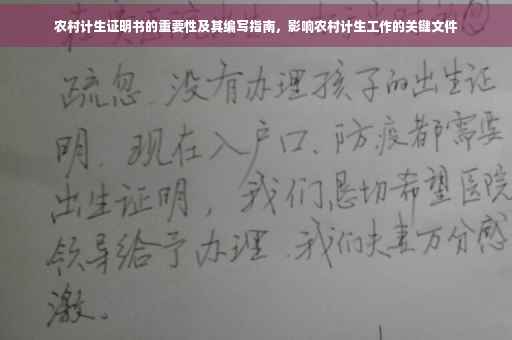 农村计生证明书的重要性及其编写指南，影响农村计生工作的关键文件
疏忽、没有办理孩子的出生证
明、现在入户口、防疫都需要
出生证明，我们恳切希望医院
领导给予办理、我们夫妻万分感
激。